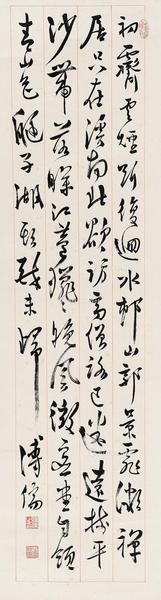 初霽雲煙斷復迴水邨山郭景霏微禪
居只在溪南北欲訪高僧路已迷遠樹平
沙帶落暉江獵獵晚風微自領
青山色艇子湖頭殊未歸
溥儒